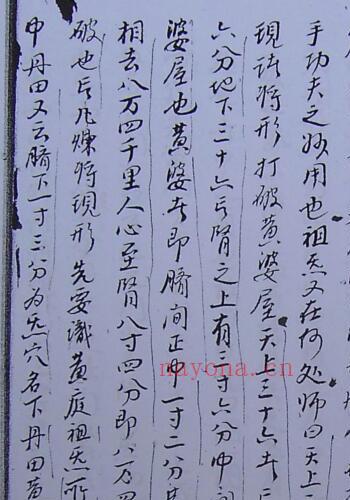 手功夫之妙用也祖炁又在何处師曰天上
現諸将形打破黄婆屋天上三十六者二
六分地下三十六言腎之上有三寸六分中间
婆屋也黄婆者即臍间正中一寸二分
相去八万四千里人心至腎八寸四分即八万四
破也言凡煉将現形先要識黄庭祖炁所
中丹田又云臍下一寸三分為炁穴名下丹田黄
nayona.cn